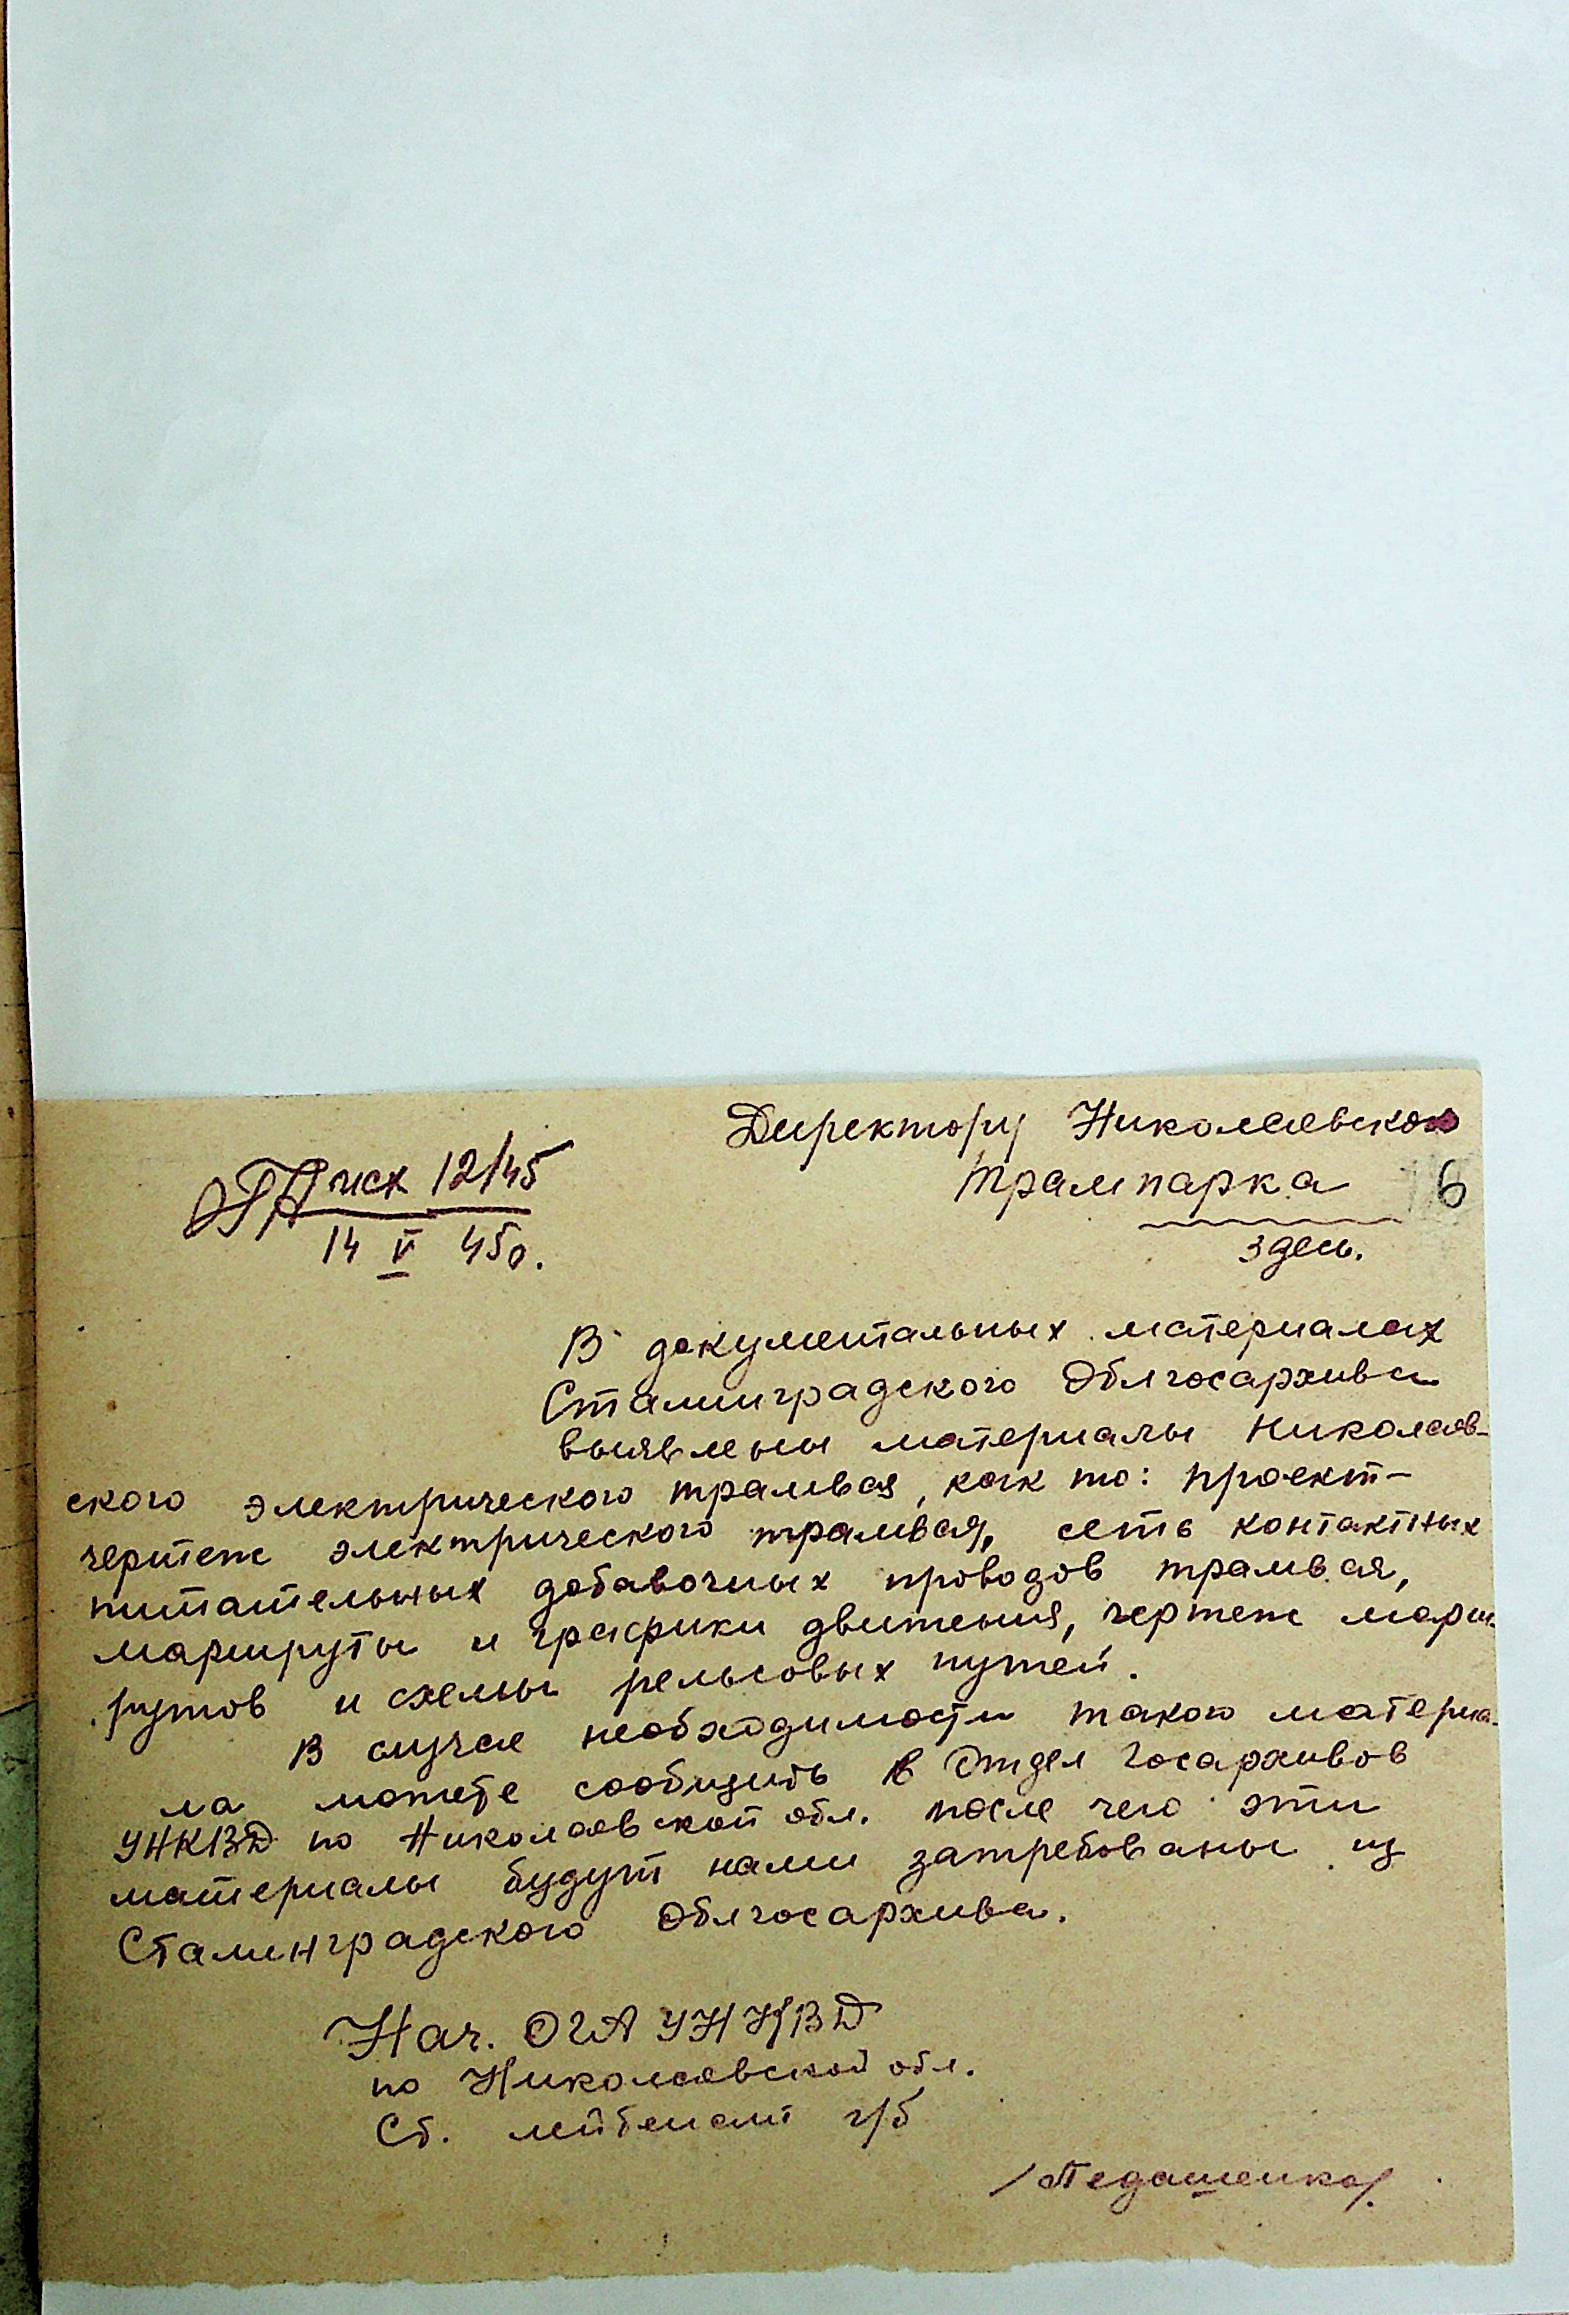 Директору Николаевского
трампарка
6
здесь.
ОГА исх 12/45
14 V 45г.
В документальных материалах
Сталинградского Облгосархива
выявлены материалы Николаев-
ского электрического трамвая, как то: проект-
чертеж электрического трамвая, сеть контактных
питательных добавочных проводов трамвая,
маршруты и графики движения, чертеж марш-
рутов и схемы рельсовых путей.
В случае необходимости такого материа-
ла можете сообщить в Отдел Госархивов
УНКВД по Николаевской обл. после чего эти
материалы будут нами затребованы из
Сталинградского Облгосархива.
Нач. ОГА УНКВД
по Николаевской обл.
Ст. лейтенант г/б
/Педашенко/.